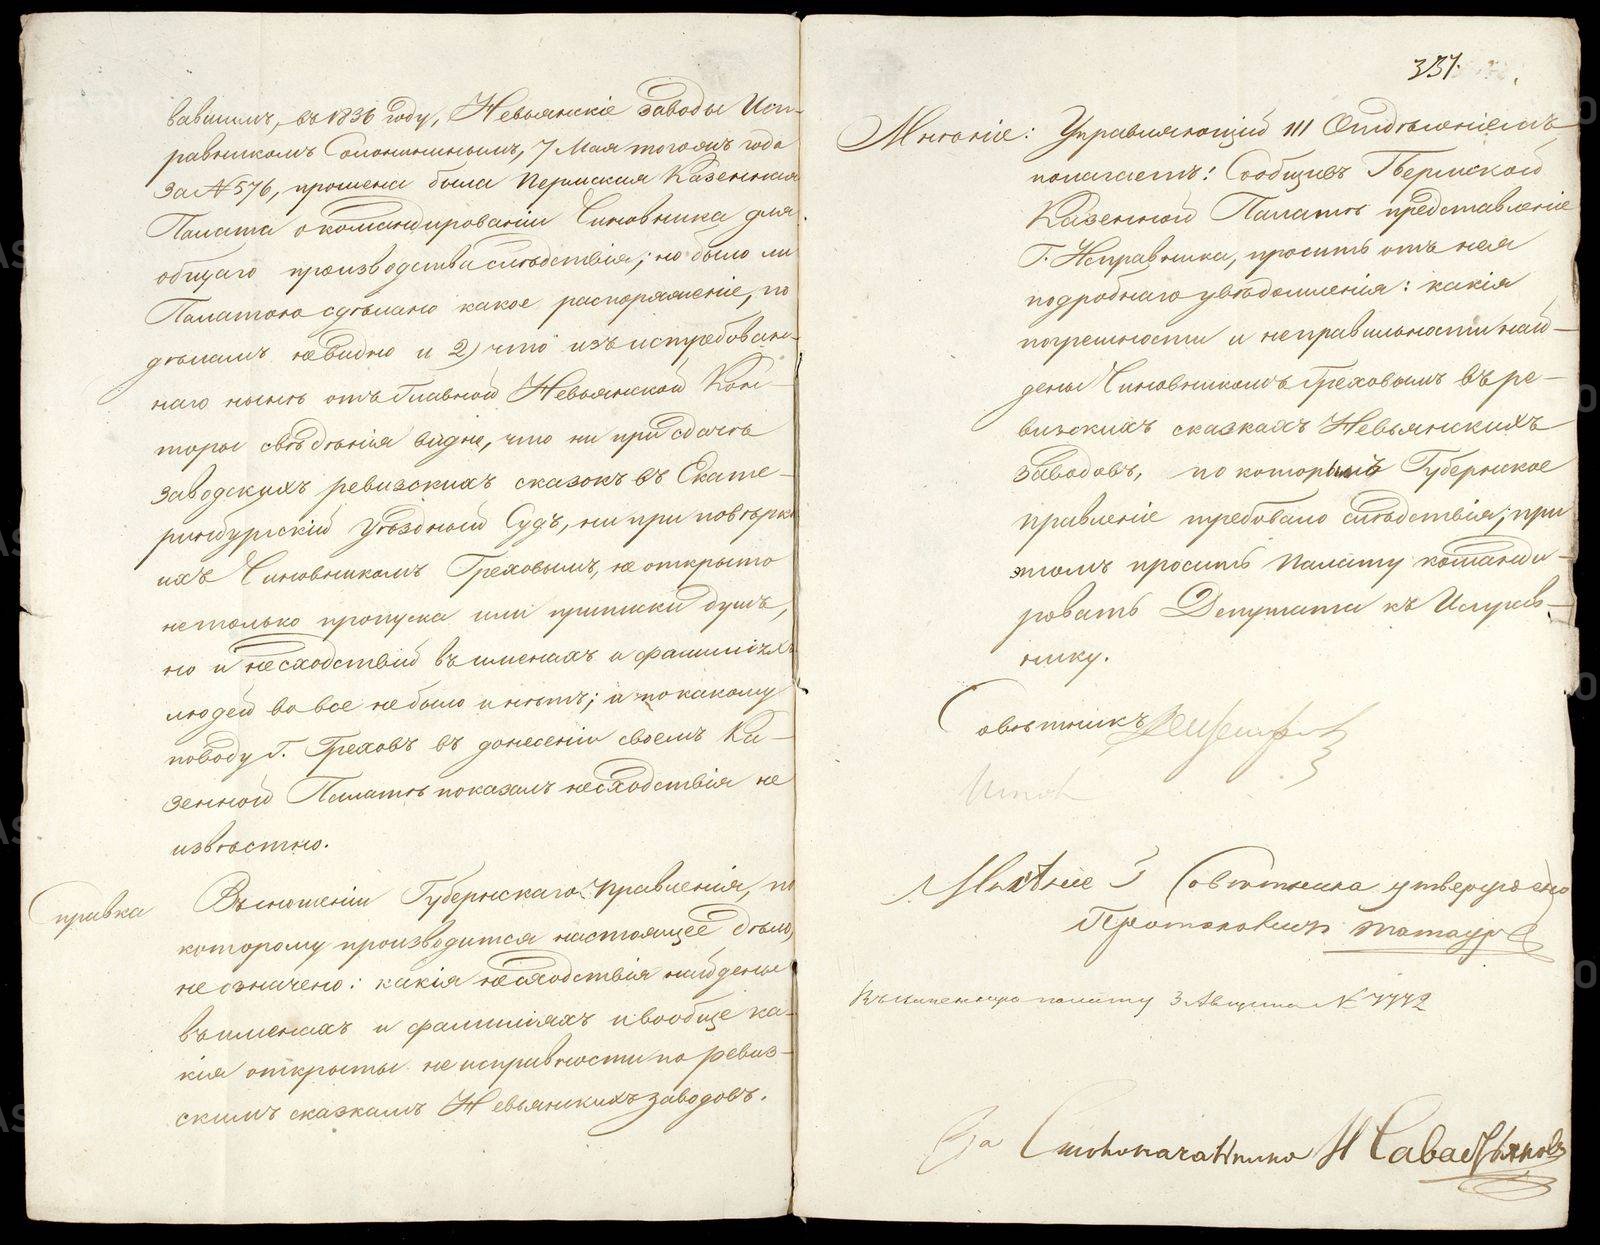 вавшимъ, въ 1836 году, Невьянскіе заводы Исп-
равникомъ Солонининымъ, 7 Мая тогожъ года
за № 576, прошена была Пермская Казенная
Палата о командированіи Чиновника для
общаго производства слѣдствія; но было ли
Палатою сдѣлано какое распоряженіе, по
дѣламъ невидно и 2) что изъ истребован-
наго нынѣ отъ Главной Невьянской Кон-
торы свѣдѣнія видно, что ни при сдачѣ
заводскихъ ревизскихъ сказокъ въ Екате-
ринбургскій Уѣздный Судъ, ни при повѣрке
ихъ Чиновникомъ Греховымъ, не открыто
нетолько пропуска или приписки душъ,
но и несходствій въ именахъ и фамиліяхъ
людей во все небыло и нѣтъ; и по какому
поводу Г. Греховъ въ донесеніи своемъ Ка-
зенной Палатѣ показалъ несходствія не
извѣстно.
Справка
Въ сношеніи Губернскаго Правленія, по
которому производится настоящее дѣло,
не означено: какія несходствія найдены
въ именахъ и фамиліяхъ и вообще ка-
кія открыты неисправности по ревиз-
скимъ сказкамъ Невьянскихъ заводовъ.
337.
Мнѣніе: Управляющій III Отдѣленіемъ
полагаетъ: Сообщивъ Пермской
Казенной Палатѣ представленіе
Г. Исправника, просить отъ нея
подробнаго увѣдомленія: какія
погрешности и неправильности най-
дены Чиновникомъ Греховымъ въ ре-
визскихъ сказкахъ Невьянскихъ
заводовъ, по которымъ Губернское
Правленіе требовало слѣдствія; при
этомъ просить Палату команди-
ровать Депутата къ Исправ-
нику.
Совѣтникъ
Мнѣніе Г. Совѣтника утверждено
Въ казенную палату 3 Августа № 7772
За Столоначальника Н Савастьяновъ